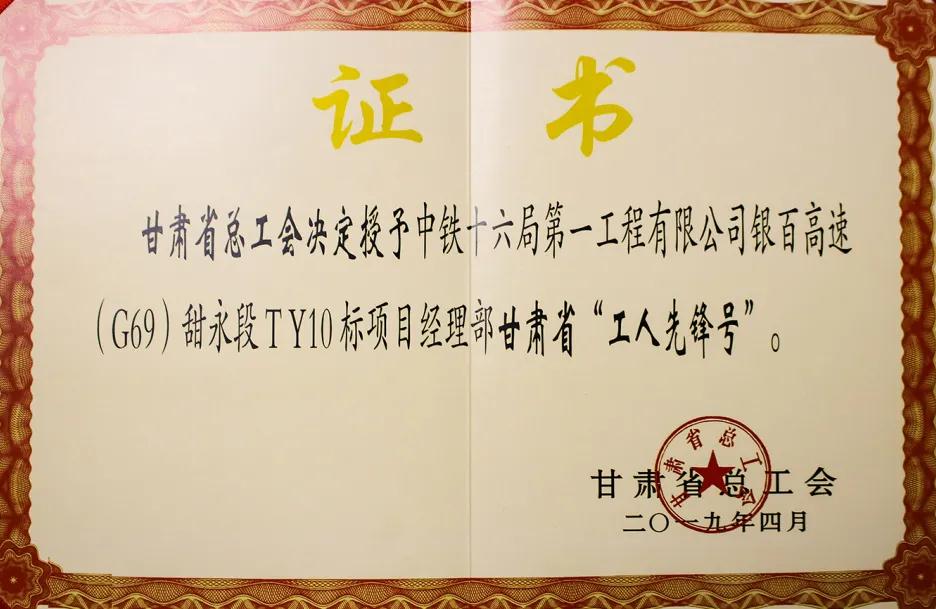 证书
甘肃省总工会决定授予中铁十六局第一工程有限公司银百高速
（G69）甜永段TY10标项目经理部甘肃省“工人先锋号”。
甘肃省总工会
甘肃省总工会
二〇一九年四月